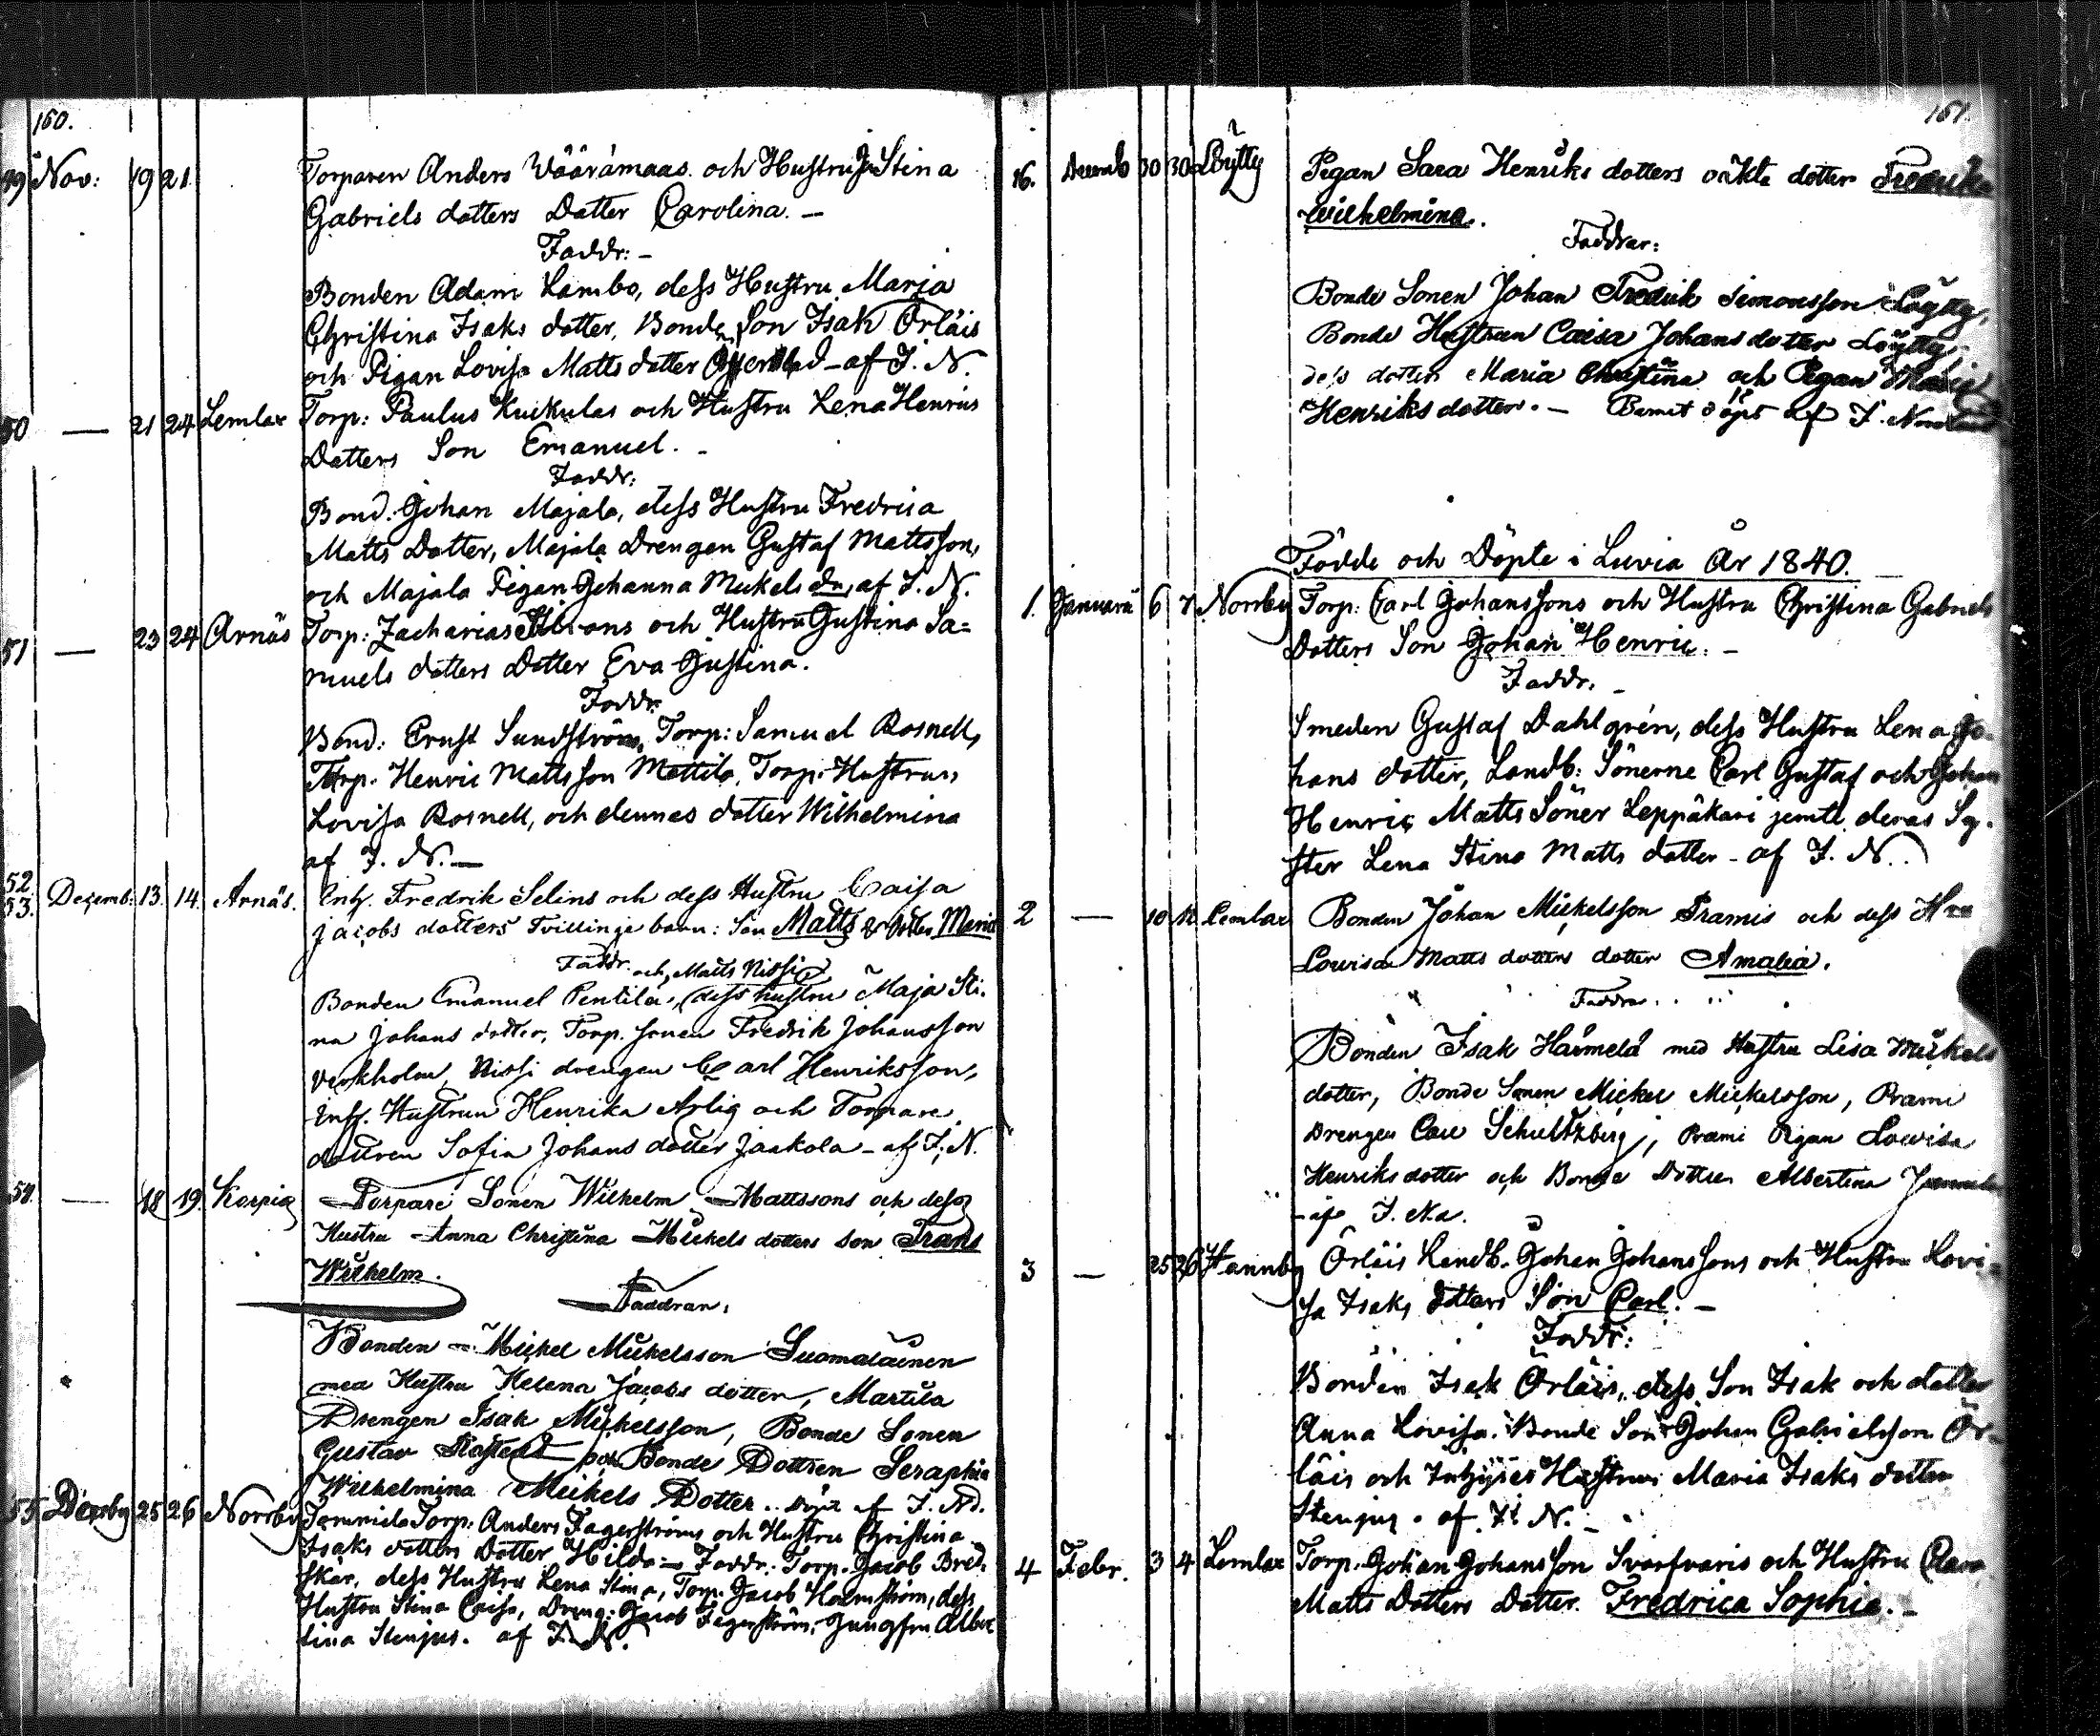 160.
49 Nov: 19 21 Torparen Anders Väärämaas och Hustru Stina
Gabriels dotters Dotter Carolina. —
Faddr: —
Bonden Adam Lambo, dess Hustru Maria
Christina Isaks dotter, Bonde Son Isak Örläis
och Pigan Lovisa Matts dotter — af I. N.
50 — 21 24 Lemlax Torp: Paulus Kuckulas och Hustru Lena Henrics
Dotters Son Emanuel. —
Faddr:
Bond: Johan Majala, dess Hustru Fredrica
Matts Dotter, Majala Drengen Gustaf Mattsson,
och Majala Pigan Johanna Mickels dr, af I. N.
51 — 23 24 Arnäs Torp: Zacharias och Hustru Gustina Sa=
muels dotters Dotter Eva Gustina.
Faddr.
Bond: Ernst Sundström, Torp: Samuel Rosnell,
Torp. Henric Mattsson Mattila, Torp. Hustrun
Lovisa Rosnell, och dennes dotter Wilhelmina
af I. N. —
52. 53. Decemb: 13. 14. Arnäs. Inh. Fredrik Selins och dess Hustru Caisa
Jacobs dotters Tvillinge barn: Son Matts & dotter Maria
Faddr. och Matts Nissi
Bonden Emanuel Pentilä, dess hustru Maja Sti.
na Johans dotter, Torp. sonen Fredrik Johansson
Verkholm, Nissi drengen Carl Henriksson,
Inh. Hustrun Henrika Arlig och Torpare
dottren Sofia Johans dotter Jaakola — af I. N.
54. — 18 19. Korpig Torpare Sonen Wilhelm Mattssons och dess
Hustru Anna Christina Mickels dotters son Frans
Wilhelm.
Faddrar:
Bonden Mickel Mickelsson Suomalainen
med Hustru Helena Jacobs dotter, Martila
Drengen Isak Mickelsson, Bonde Sonen
Gustav och Bonde Dottren Seraphia
Wilhelmina Mickels Dotter. Döpt af I. Nd.
55 Decbr 25 26 Norrby Torp: Anders Fagerströms och Hustru Christina
Isaks dotters Dotter Hilda. — Faddr. Torp. Jacob Bred.
skär, dess Hustru Lena Stina, Torp. Jacob Holmström, dess
Hustru Stina Caisa, Dreng: Jacob Fagerström, Jungfru Alber
tina Stenjus. af I. N.
161.
56. Decemb 30 30 Löytty Pigan Sara Henriks dotters oäkta dotter Fredrika
Wilhelmina.
Faddrar:
Bonde Sonen Johan Fredrik Simonsson Löytty,
Bonde Hustrun Caisa Johans dotter Löytty,
dess dotter Maria Christina och Pigan Maria
Henriks dotter. — Barnet döpt af I.
Födde och Döpte i Luvia År 1840.
1. Januarii 6 7 Norrby Torp: Carl Johanssons och Hustru Christina Gabriels
Dotters Son Johan Henric. —
Faddr. —
Smeden Gustaf Dahlgrén, dess Hustru Lena Jo-
hans dotter, Landb: Sönerne Carl Gustaf och Johan
Henric Matts Söner Leppäkari jemte deras Sy.
ster Lena Stina Matts dotter — af I. N.
2 — 10 12 Lemlax Bonden Johan Mickelsson Pramis och dess
Lowisa Matts dotters dotter Amalia.
Faddrar.
Bonden Isak Harmelä med Hustru Lisa Mickels
dotter, Bonde Sonen Mickel Mickelsson, Prami
Drengen Carl Schultzberg, Prami Pigan Lowisa
Henriks dotter och Bonde Dottren Albertina
— af I. Nd.
3 — 25 26 Hannby Örläis Landb. Johan Johanssons och Hustru Lovi-
sa Isaks dotters Son Carl. —
Faddr:
Bonden Isak Örläis, dess Son Isak och dotter
Anna Lovisa. Bonde Son Johan Gabrielsson Ör-
läis och Inhyses Hustrun Maria Isaks dotter
Stenjus. af I. N. —
4 Febr. 3 4 Lemlax Torp. Johan Johansson Svartvaris och Hustru Clara
Matts Dotters Dotter. Fredrica Sophia. —